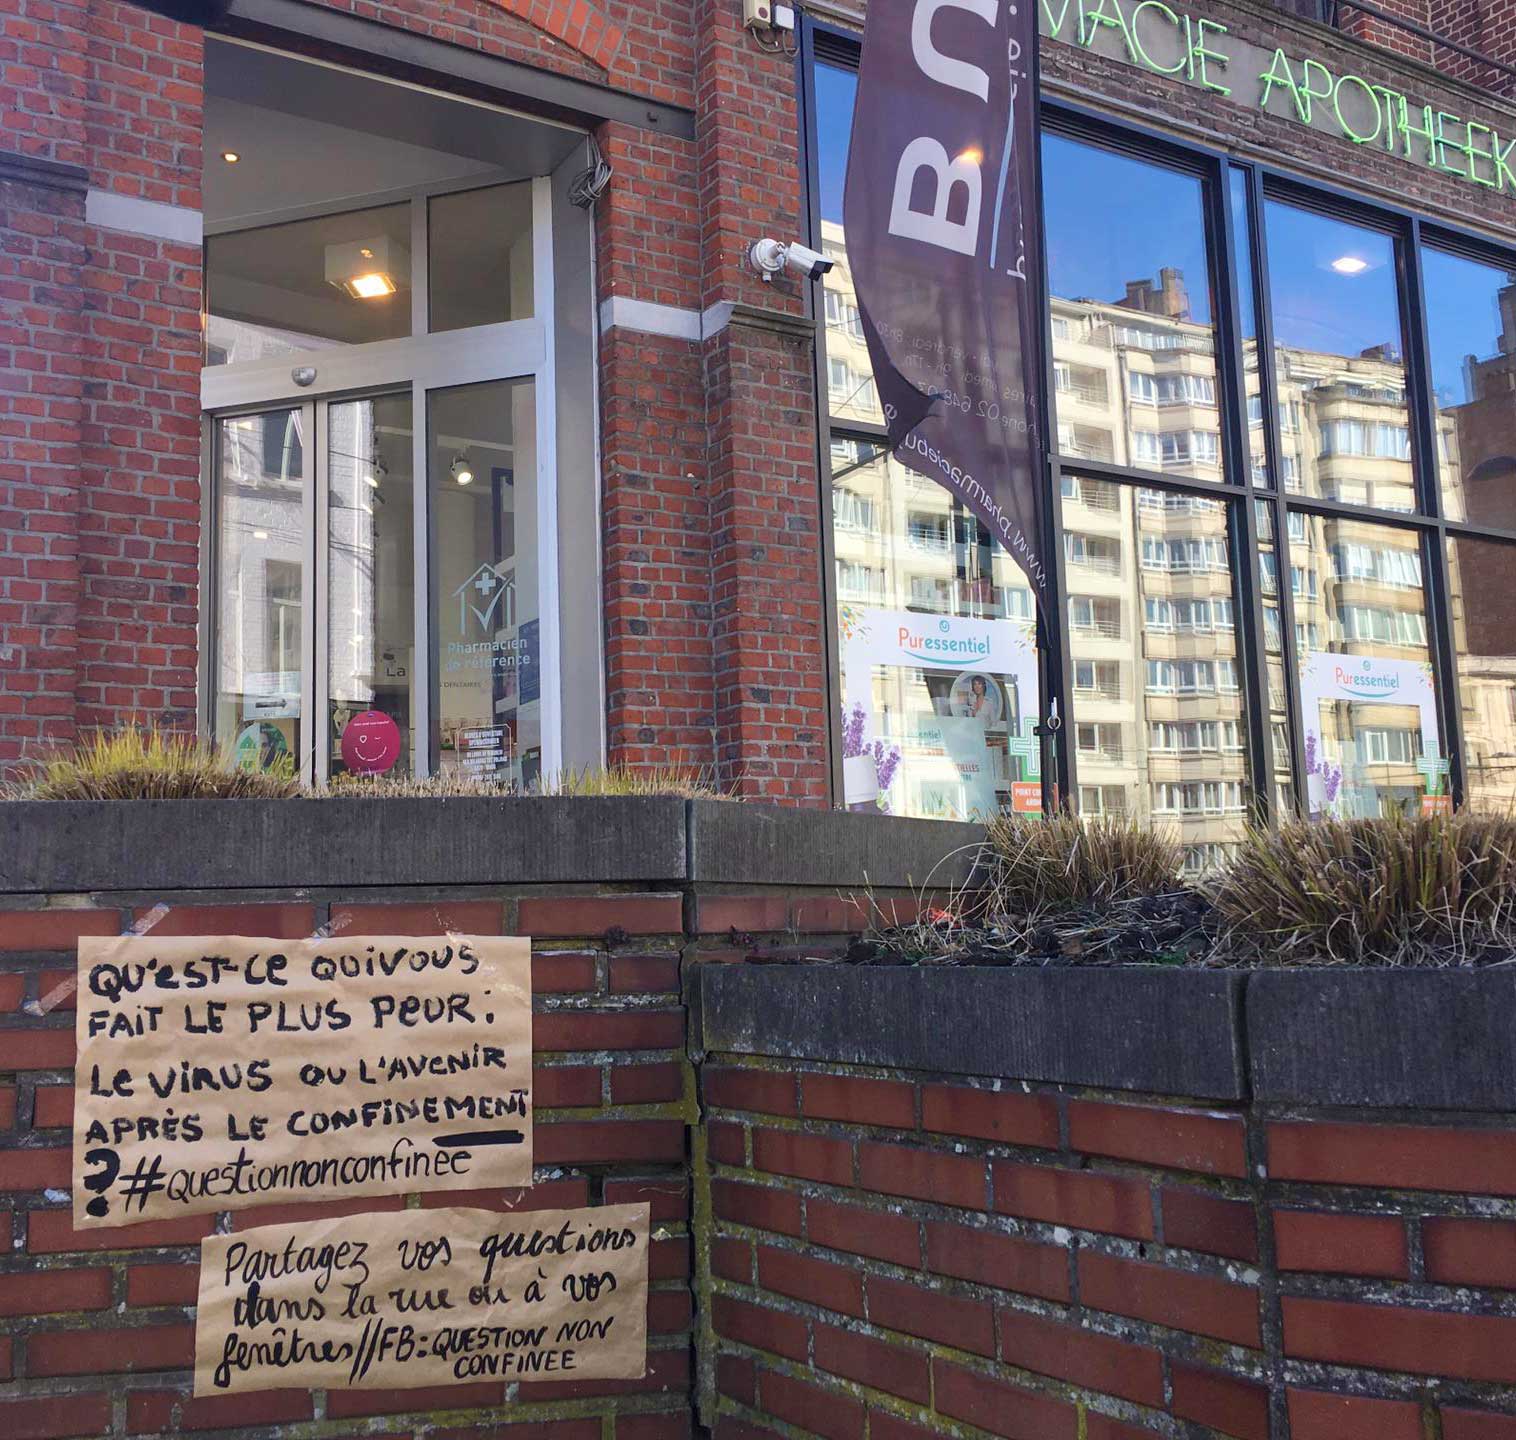 MACIE APOTHEEK
Bu
Pharmacien
de référence
La
Puressentiel
Puressentiel
QU'EST-CE QUI VOUS
FAIT LE PLUS PEUR :
LE VIRUS OU L'AVENIR
APRÈS LE CONFINEMENT
? #questionnonconfinée
Partagez vos questions
dans la rue ou à vos
fenêtres // FB : QUESTION NON
CONFINEE